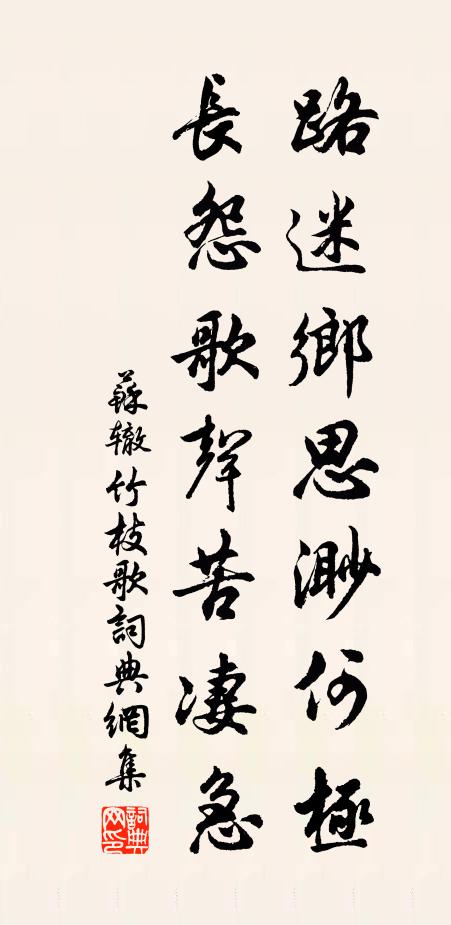 路迷鄉思渺何極
長怨歌聲苦凄急
蘇辙竹枝歌詞典網集
詞典網印